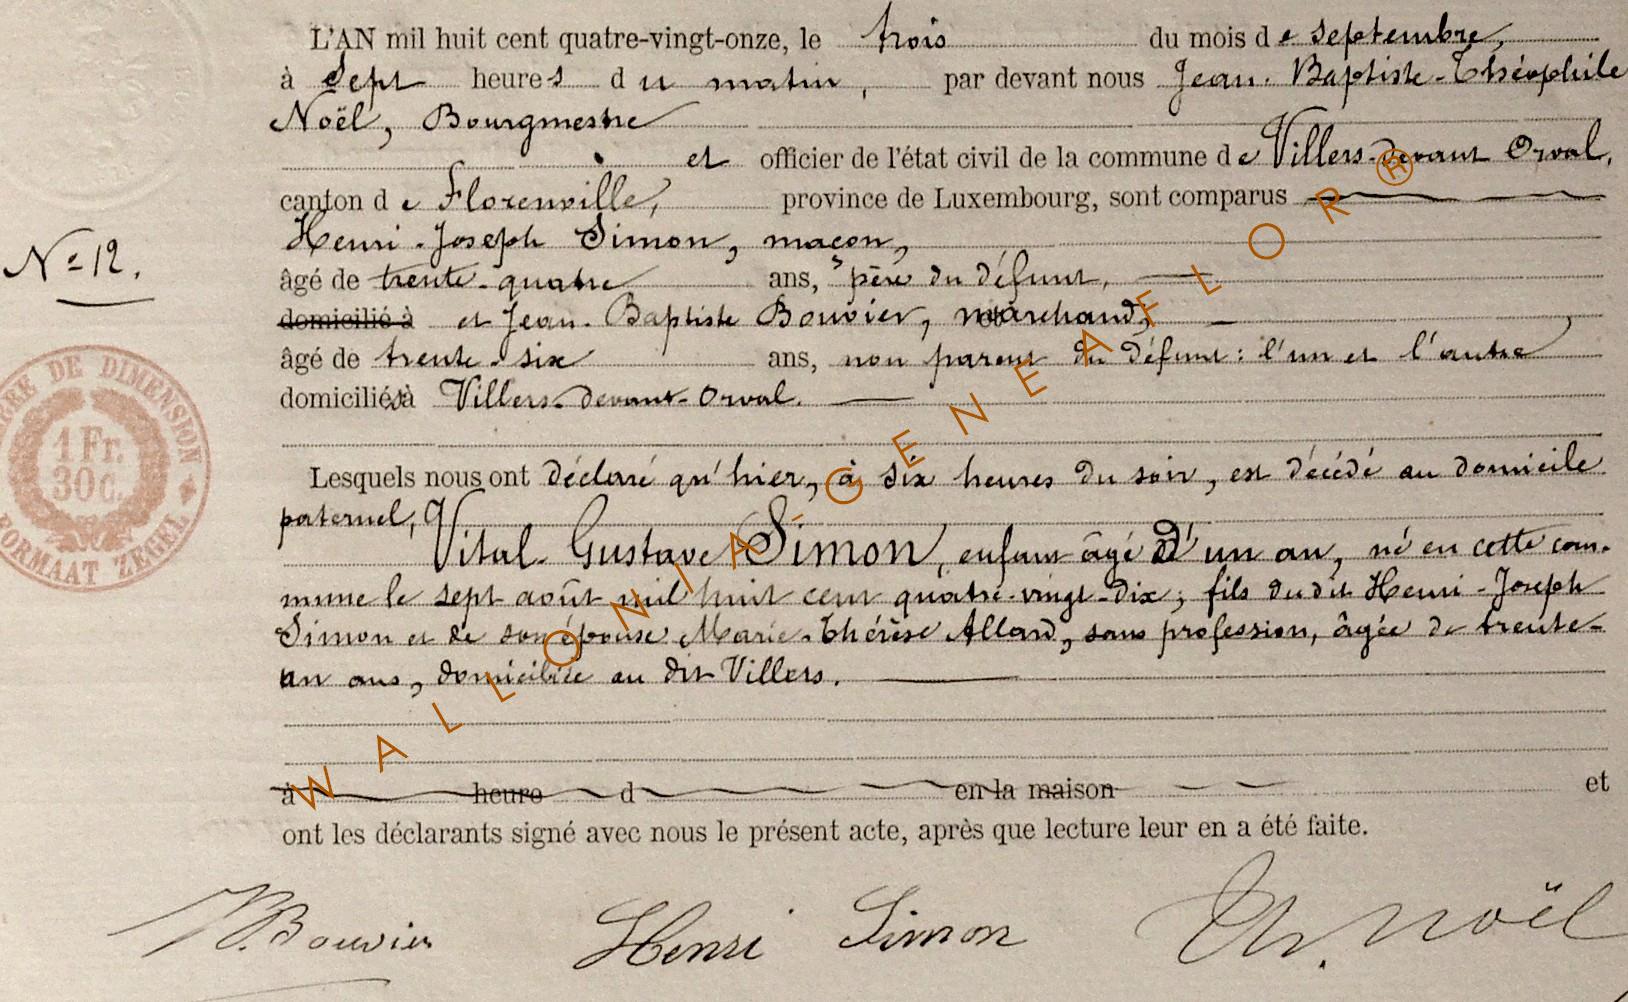 L'AN mil huit cent quatre-vingt-onze, le trois du mois de septembre,
à sept heures du matin, par devant nous Jean-Baptiste-Théophile
Noël, Bourgmestre
et officier de l'état civil de la commune de Villers-devant Orval,
canton de Florenville, province de Luxembourg, sont comparus
Henri-Joseph Simon, maçon,
N° 12.
âgé de trente-quatre ans, père du défunt,
domicilié à et Jean-Baptiste Bouvier, marchand,
âgé de trente-six ans, non parent du défunt : l'un et l'autre
domiciliés à Villers-devant-Orval.
TIMBRE DE DIMENSION
1 Fr.
30 c.
FORMAAT ZEGEL
Lesquels nous ont déclaré qu'hier, à six heures du soir, est décédé au domicile
paternel,
Vital-Gustave Simon, enfant âgé d'un an, né en cette com-
mune le sept août mil huit cent quatre-vingt-dix ; fils dudit Henri-Joseph
Simon et de son épouse Marie-Thérèse Allard, sans profession, âgée de trente-
un ans, domiciliée au dit Villers.
à heure d en la maison et
ont les déclarants signé avec nous le présent acte, après que lecture leur en a été faite.
Bouvier Henri Simon Th. Noël
WALLONIA-GENEAFLOR®